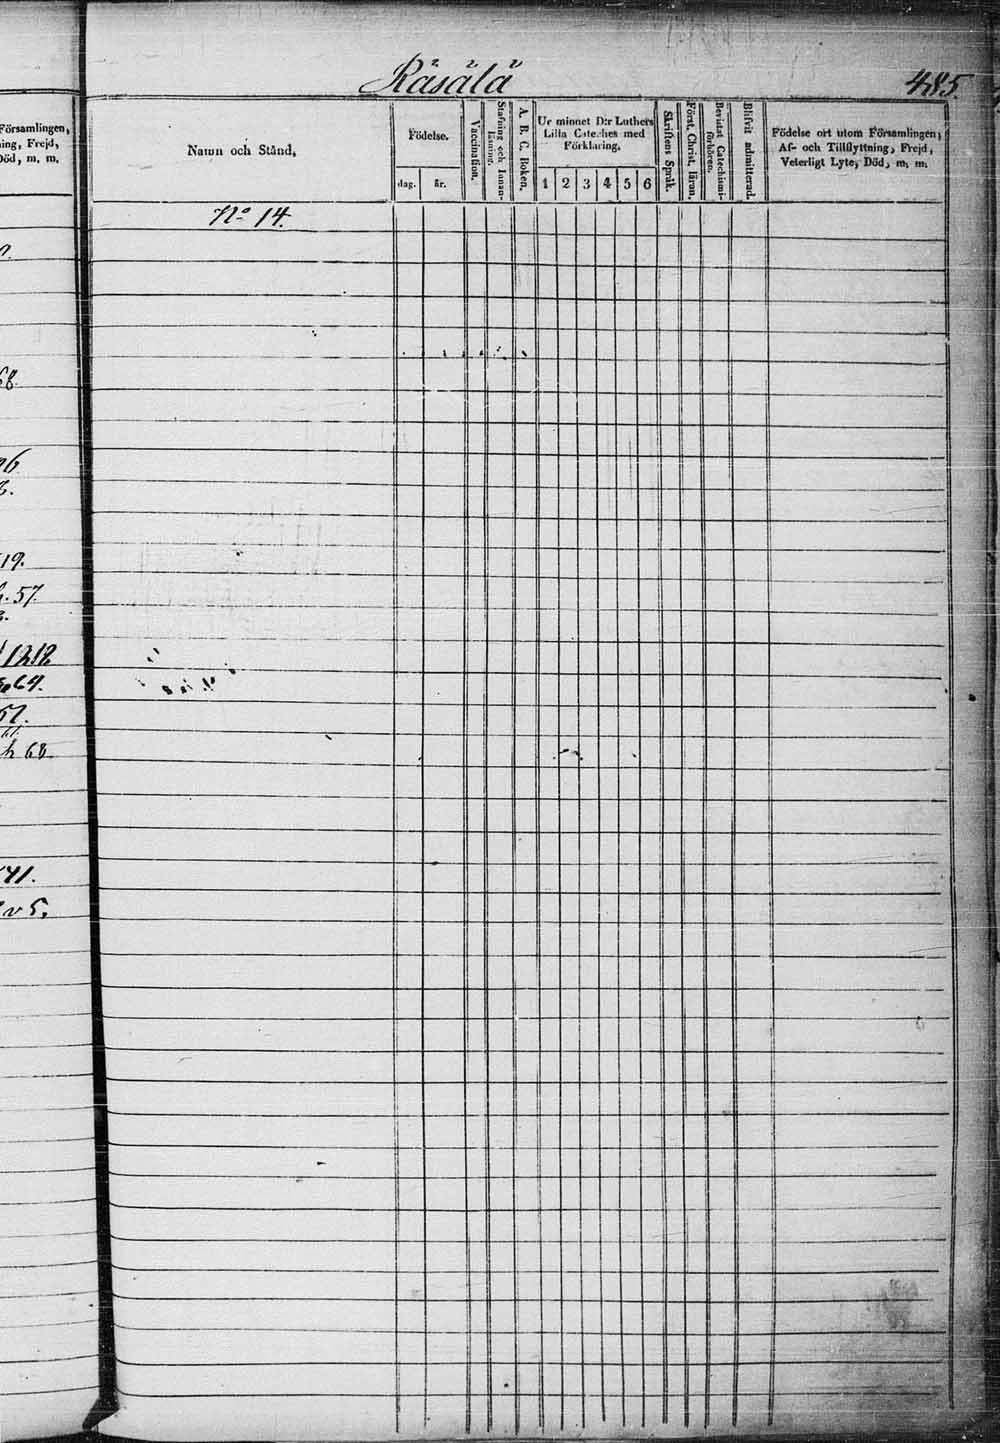 Räsälä
485.
Församlingen,
ing, Frejd,
Död, m. m.
Namn och Stånd,
Födelse.
dag. år.
Vaccination.
Stafning och Innan-
läsning.
A. B. C. Boken.
Ur minnet D:r Luthers
Lilla Cateches med
Förklaring.
1 2 3 4 5 6
Skriftens Språk.
Först. Christ. läran.
Bevistat Catechismi-
förhören.
Blifvit admitterad.
Födelse ort utom Församlingen,
Af- och Tillflyttning, Frejd,
Veterligt Lyte, Död, m. m.
No 14.
68.
19.
57.
1212
64.
57.
68
41.
v 5.